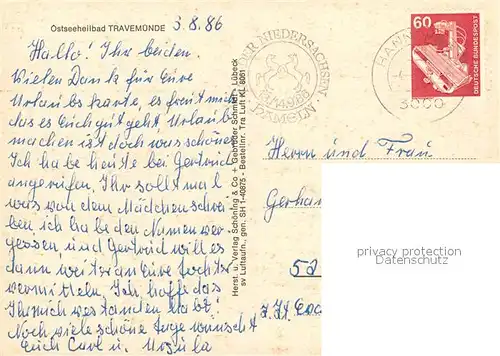 Ostseeheilbad TRAVEMÜNDE
3.8.86
Hallo! Ihr beiden
Vielen Dank für Eure
Urlaubskarte, es freut mich
das es Euch gut geht. Urlaub
machen ist doch was schönes
Ich habe heute bei Gertrud
angerufen, Ihr sollt mal
was von dem Mädchen schrei
ben ich habe den Namen ver
gessen, und Gertrud will es
dann weiter an Eure Tochter
vermitteln. Ich hoffe das
Ihr mich verstanden habt!
Noch viele schöne Tage wünscht
Euch Carl u. Ursula
Herst. u. Verlag Schöning & Co + Gebrüder Schmidt - Lübeck
sv Luftaufn., gen. SH 1-40875 - Bestellnr. Tra Luft KL 8061
DER NIEDERSACHSEN
60
DEUTSCHE BUNDESPOST
HANN
3000
Herrn und Frau
Gerha
52
privacy protection
watermark